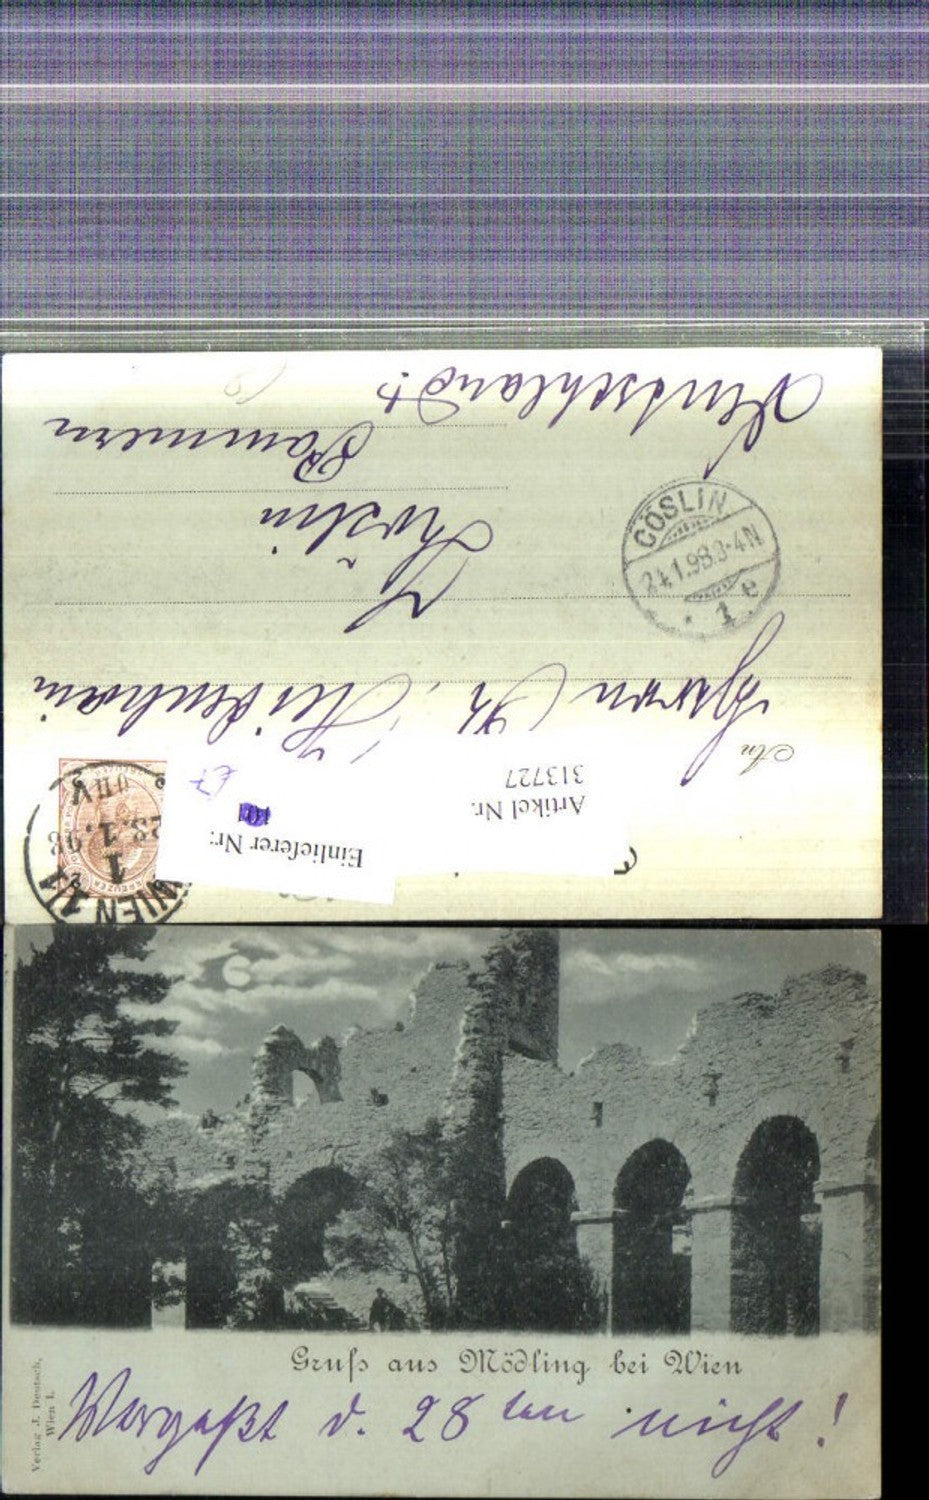 Deutschland
Pommern
Cöslin
CÖSLIN
24.1.98.3-4N
1 e
An
Herrn Dr.
Artikel Nr.
313727
Einlieferer Nr:
101
E7
KREUZER
WIEN 1/1
1
23.1.98
Gruß aus Mödling bei Wien
Vergeßt d. 28ten nicht!
Verlag J. Deutsch,
Wien I.